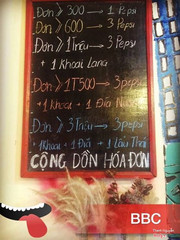 Đơn ≥ 300 → 1 Pepsi
Đơn ≥ 600 → 3 Pepsi
Đơn ≥ 1 Triệu → 3 Pepsi
+ 1 Khoai Lang
Đơn ≥ 1T500 → 3 pepsi
+ 1 Khoai + 1 Đĩa
Đơn ≥ 3 Triệu → 3 pepsi
+ 1 Khoai + 1 Đĩa + 1 Lẩu Thái
CỘNG DỒN HÓA ĐƠN
BBC